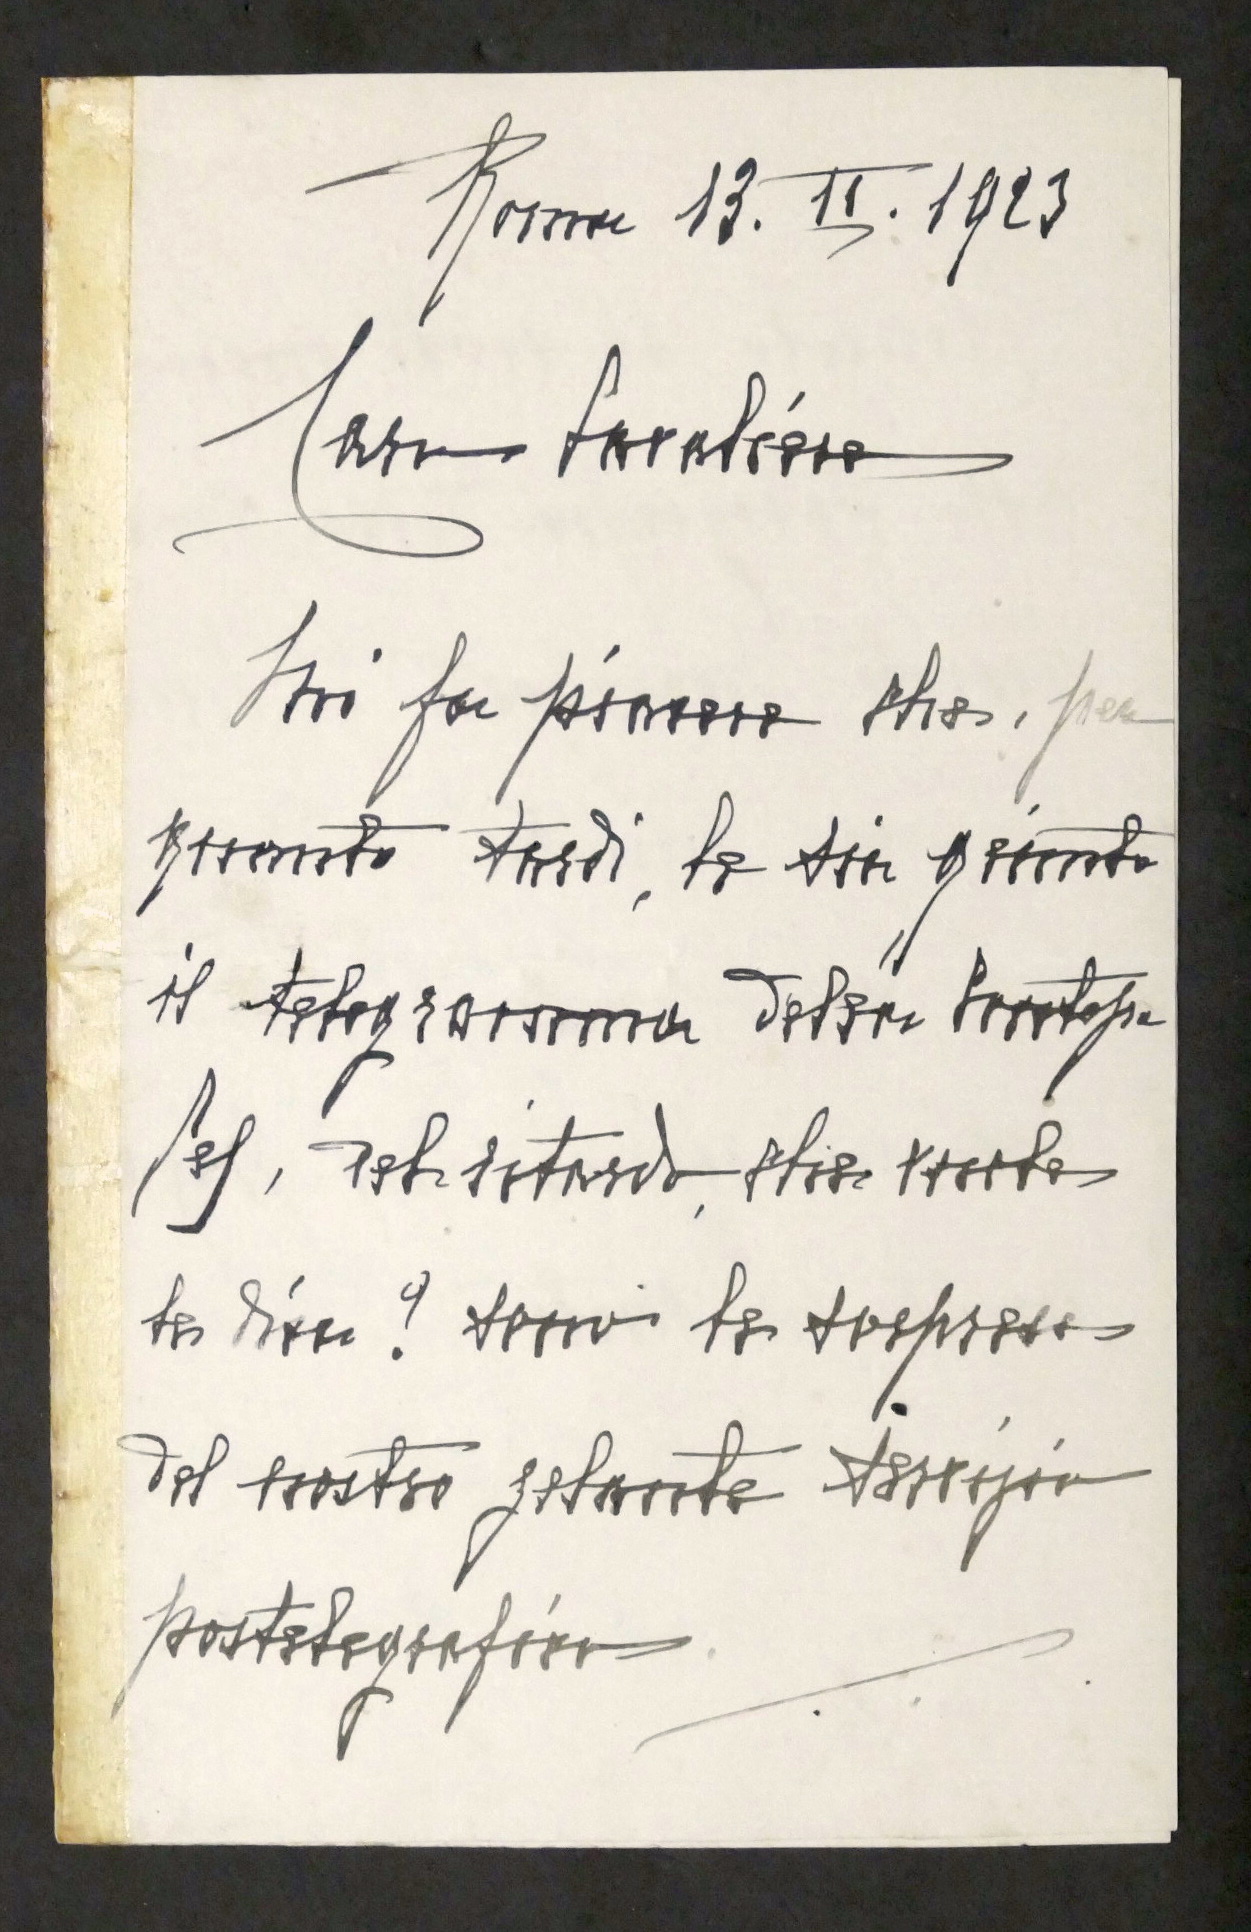 Roma 13. II. 1923
Caro Cavaliere
Mi fa piacere che, per
quanto tardi, le sia giunto
il telegramma della
del ritardo, che vuole
le dica? sono le sorprese
del nostro zelante servizio
postelegrafico